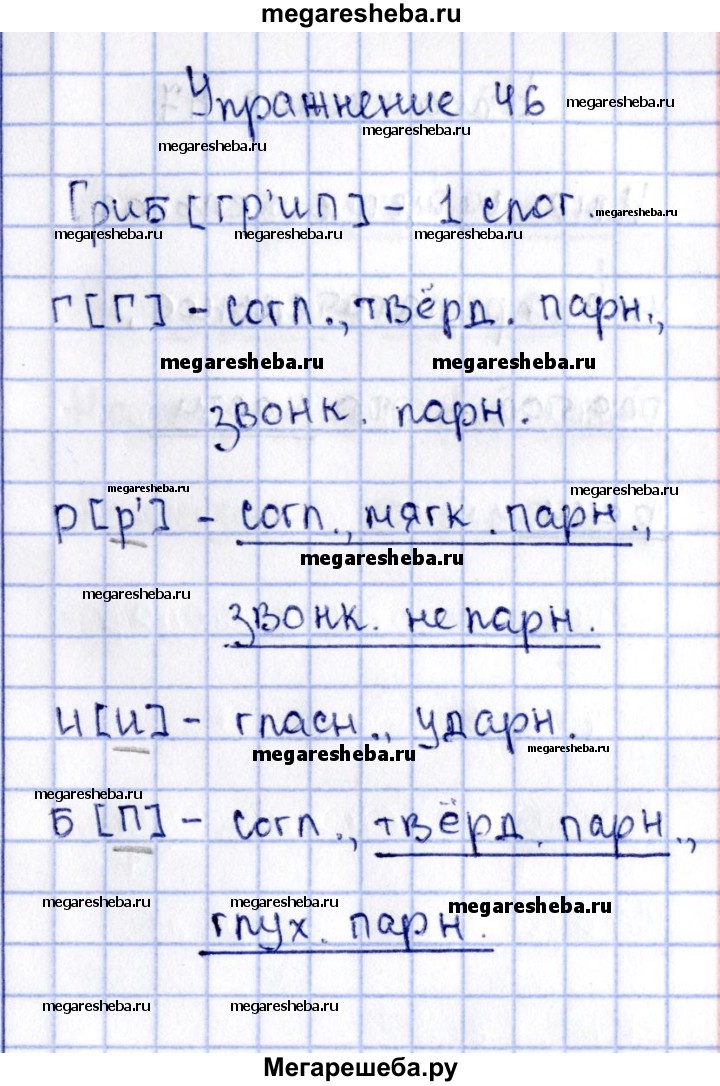 megaresheba.ru
Упражнение 46
megaresheba.ru
megaresheba.ru
megaresheba.ru
Гриб [гр'ип] - 1 слог.
megaresheba.ru
megaresheba.ru megaresheba.ru megaresheba.ru
г [г] - согл., твёрд. парн.,
megaresheba.ru megaresheba.ru
звонк. парн.
megaresheba.ru megaresheba.ru
р [р'] - согл., мягк. парн.,
megaresheba.ru
megaresheba.ru
звонк. непарн.
и [и] - гласн., ударн.
megaresheba.ru megaresheba.ru
megaresheba.ru
б [п] - согл., твёрд. парн.,
megaresheba.ru megaresheba.ru megaresheba.ru
глух. парн.
megaresheba.ru megaresheba.ru megaresheba.ru
Мегарешеба.ру